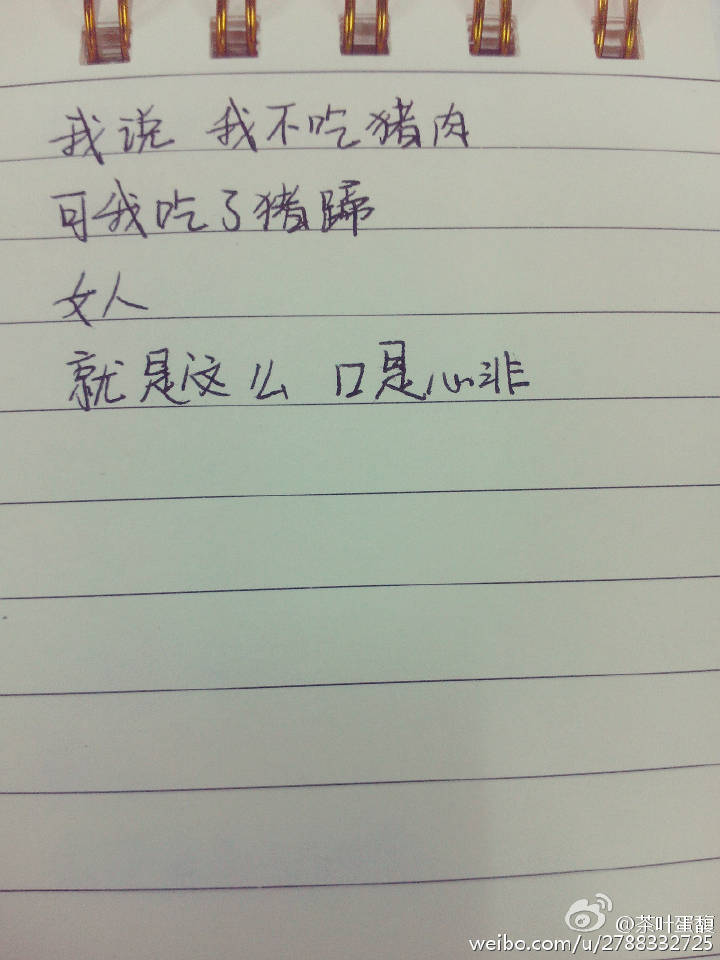 我说 我不吃猪肉
可我吃了猪蹄
女人
就是这么 口是心非
@茶叶蛋馥
weibo.com/u/2788332725